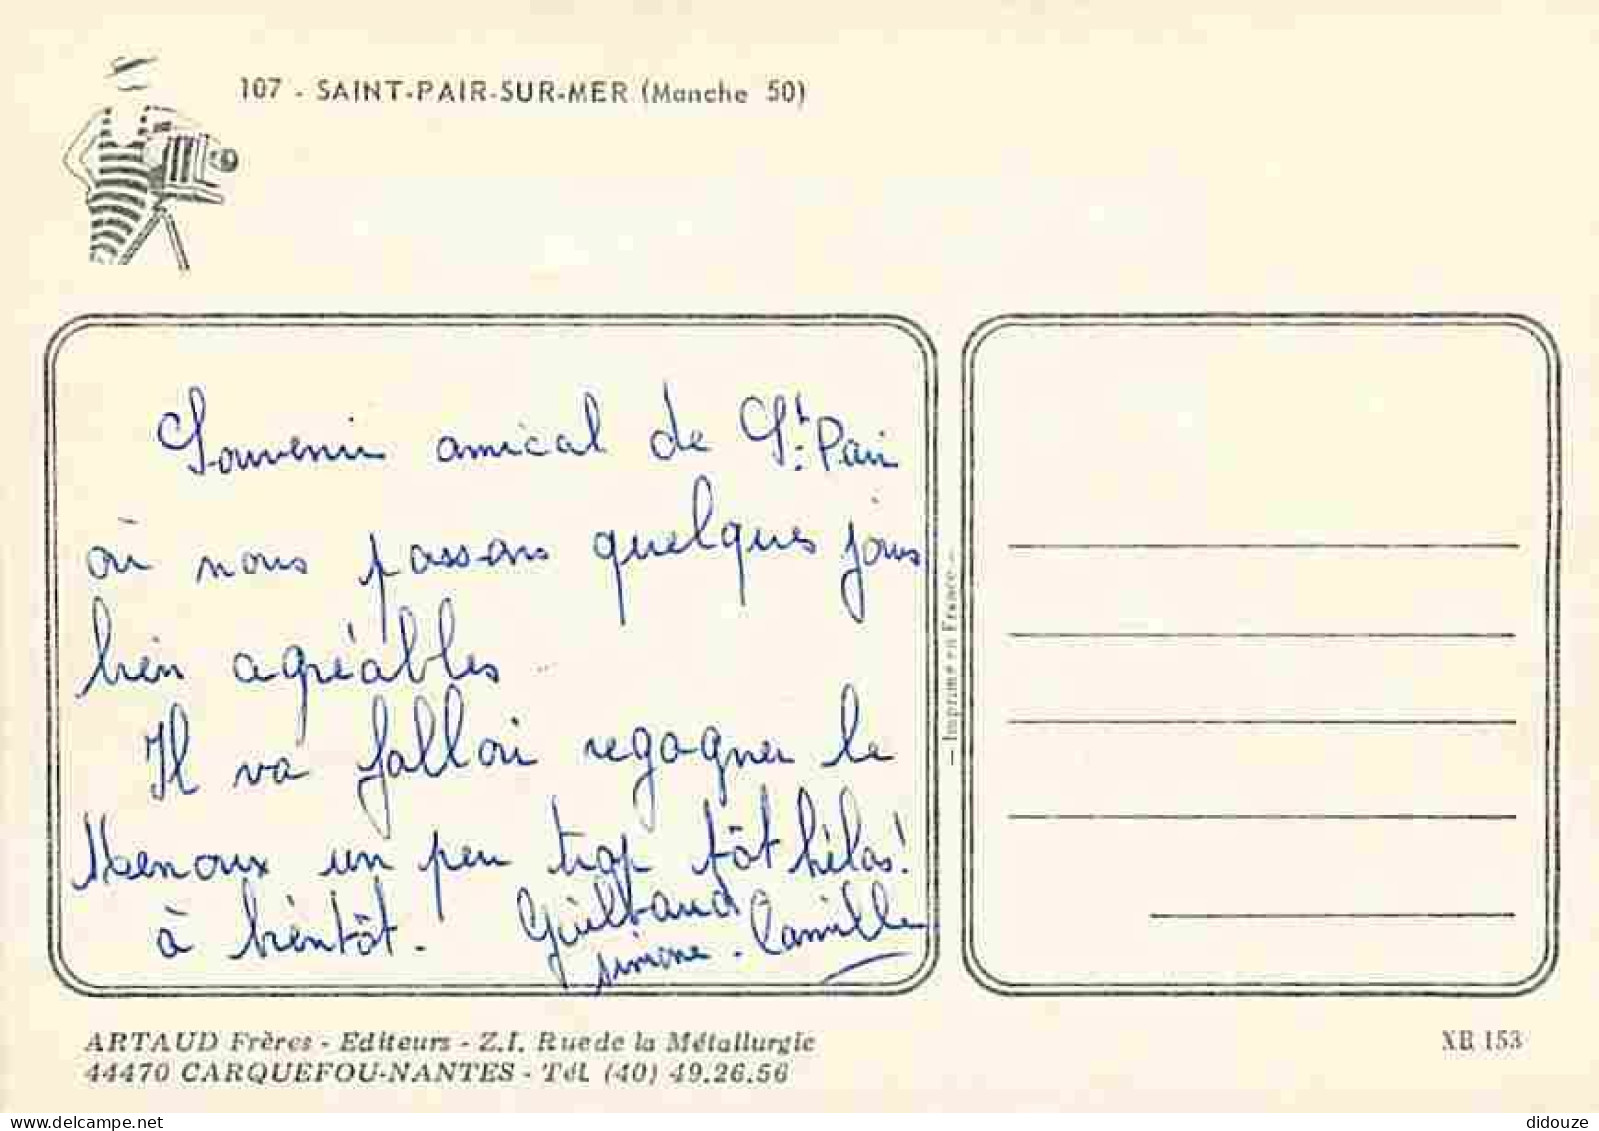 107 - SAINT-PAIR-SUR-MER (Manche 50)
Souvenir amical de St. Pair
où nous passons quelques jours
bien agréables
Il va falloir regagner le
Menoux un peu trop tôt hélas!
à bientôt. Guilbaud
simone. Camille
— Imprimé en France —
ARTAUD Frères - Editeurs - Z.I. Rue de la Métallurgie
44470 CARQUEFOU-NANTES - Tél. (40) 49.26.56
XB 153
delcampe.net
didouze